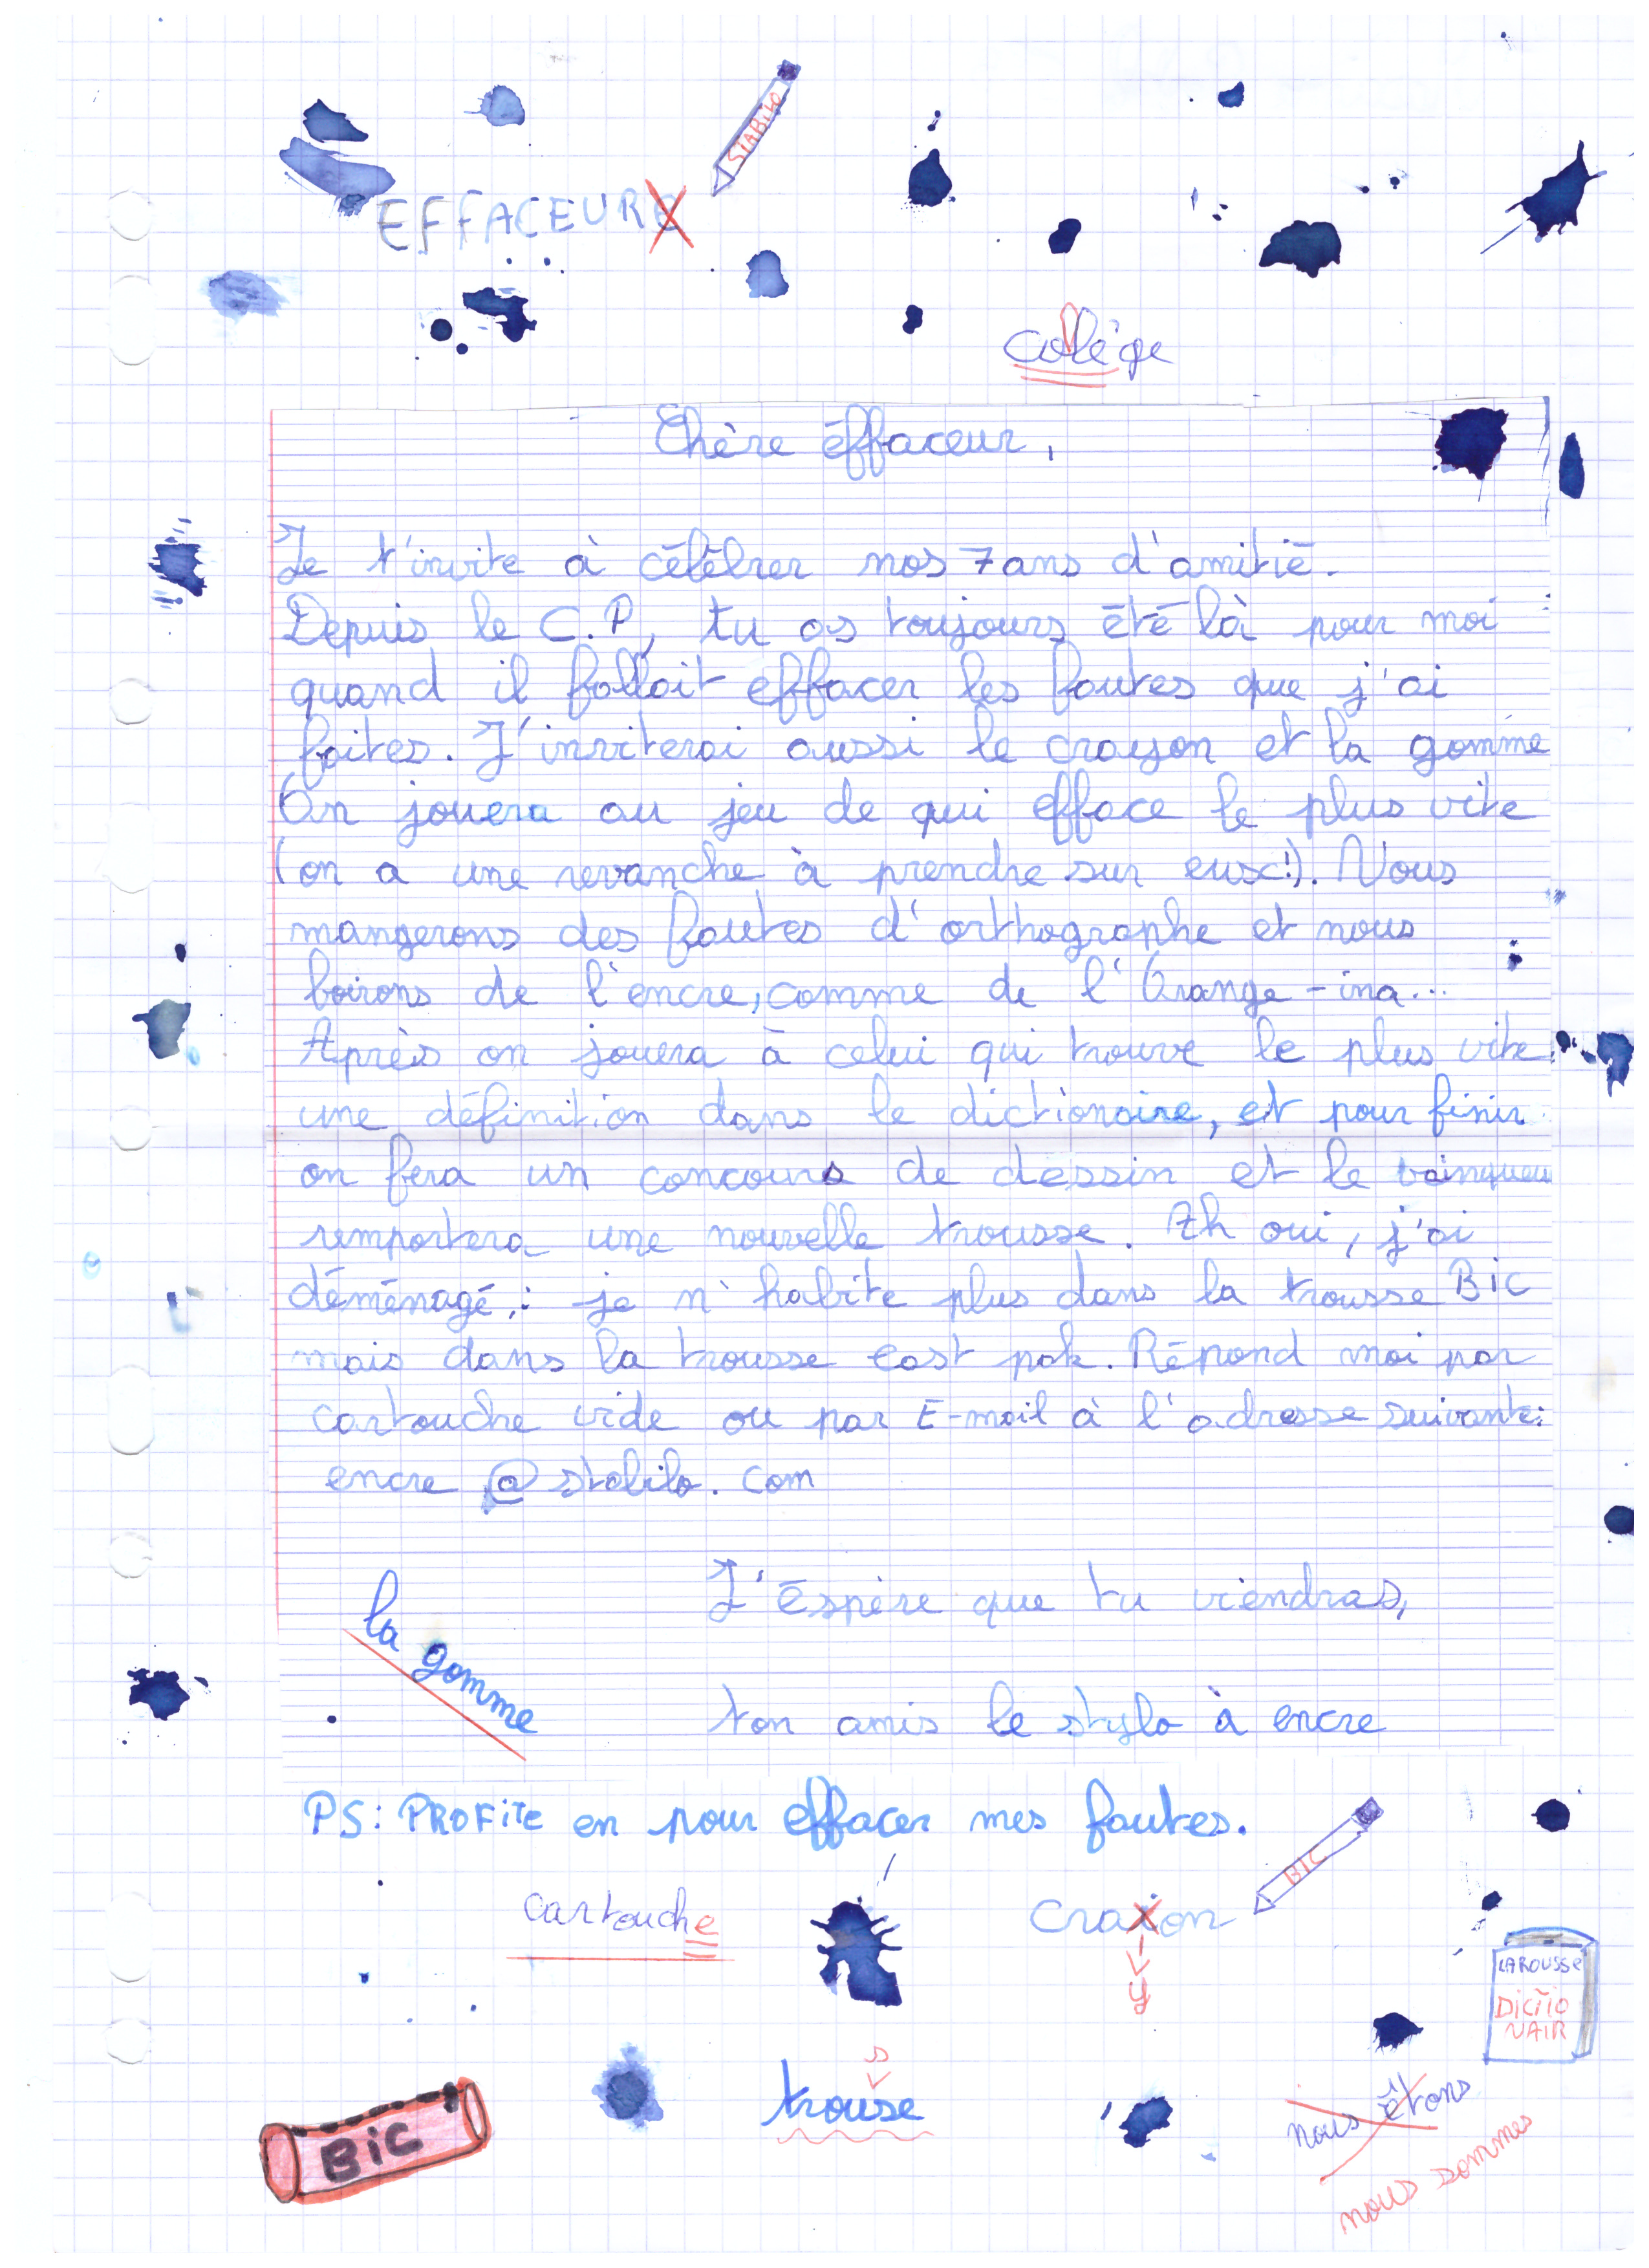 STABILO
EFFACEURE
collège
Chère éffaceur,
Je t'invite à célébrer nos 7 ans d'amitié.
Depuis le C.P, tu as toujours été là pour moi
quand il fallait effacer les fautes que j'ai
faites. J'inviterai aussi le crayon et la gomme
On jouera au jeu de qui efface le plus vite
(on a une revanche à prendre sur eux!). Nous
mangerons des fautes d'orthographe et nous
boirons de l'encre, comme de l'Orange-ina...
Après on jouera à celui qui trouve le plus vite
une définition dans le dictionaire, et pour finir
on fera un concours de dessin et le vainqueu
remportera une nouvelle trousse. Eh oui, j'ai
déménagé,: je n'habite plus dans la trousse BiC
mais dans la trousse east pak. Répond moi par
cartouche vide ou par E-mail à l'adresse suivante:
encre @ stabilo. com
J'éspère que tu viendras,
la gomme
ton amis le stylo à encre
PS: PROFiTE en pour effacer mes fautes.
BIC
cartouche
craxon
y
LAROUSSE
DiCTIO
NAIR
s
trouse
nous êtons
nous sommes
BiC